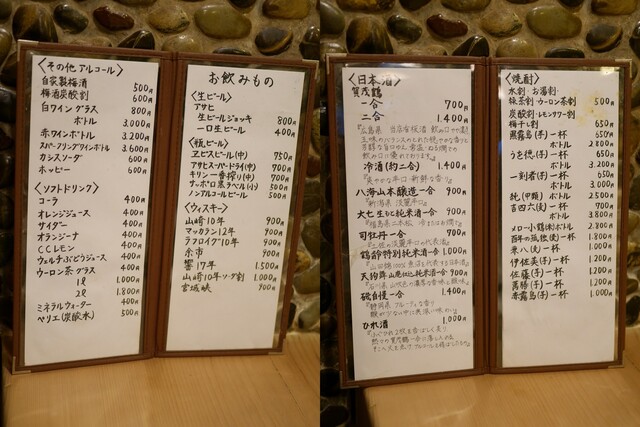 〈その他 アルコール〉
自家製梅酒 500円
梅酒炭酸割 600円
白ワイン グラス 800円
ボトル 3.000円
赤ワインボトル 3.200円
スパークリングワインボトル 3.600円
カシスソーダ 400円
ホッピー 600円
〈ソフトドリンク〉
コーラ 400円
オレンジジュース 400円
サイダー 400円
オランジーナ 400円
C.C.レモン 400円
ウェルチぶどうジュース 400円
ウーロン茶 グラス 300円
1ℓ 1.000円
2ℓ 1.800円
ミネラルウォーター 400円
ペリエ(炭酸水) 500円
お飲みもの
〈生ビール〉
アサヒ
生ビールジョッキ 800円
一口生ビール 400円
〈瓶ビール〉
ヱビスビール(中) 750円
アサヒスーパードライ(中) 700円
キリン一番搾り(中) 700円
サッポロ黒ラベル(小) 500円
ノンアルコールビール 500円
〈ウィスキー〉
山崎10年 900円
マッカラン12年 900円
ラフロイグ10年 900円
余市 700円
響17年 1.500円
山崎10年ソーダ割 1.000円
宮城峡 900円
〈日本酒〉
賀茂鶴
一合 700円
二合 1.400円
冷酒(約二合) 1.400円
八海山本醸造一合 900円
『新潟県 淡麗辛口』
大七 生もと純米酒一合 900円
司牡丹 一合 700円
鶴齢特別純米酒一合 1.000円
天狗舞山廃仕込純米酒一合 900円
砥自慢一合 1.400円
ひれ酒 1.000円
〈焼酎〉
水割・お湯割・
抹茶割・ウーロン茶割 500円
炭酸割・レモンサワー割
梅干し割 650円
黒霧島(芋)一杯 650円
ボトル 2.800円
うを徳(芋)一杯 650円
ボトル 3.000円
一刻者(芋)一杯 650円
ボトル 3.000円
純(甲類)ボトル 2.500円
吉四六(麦)一杯 700円
ボトル 3.800円
メローコヅル(米)ボトル 2.800円
百年の孤独(麦)一杯 1.500円
兼八(麦)一杯 1.000円
伊佐美(芋)一杯 1.200円
佐藤(芋)一杯 1.200円
萬膳(芋)一杯 1.200円
赤霧島(芋)一杯 1.000円